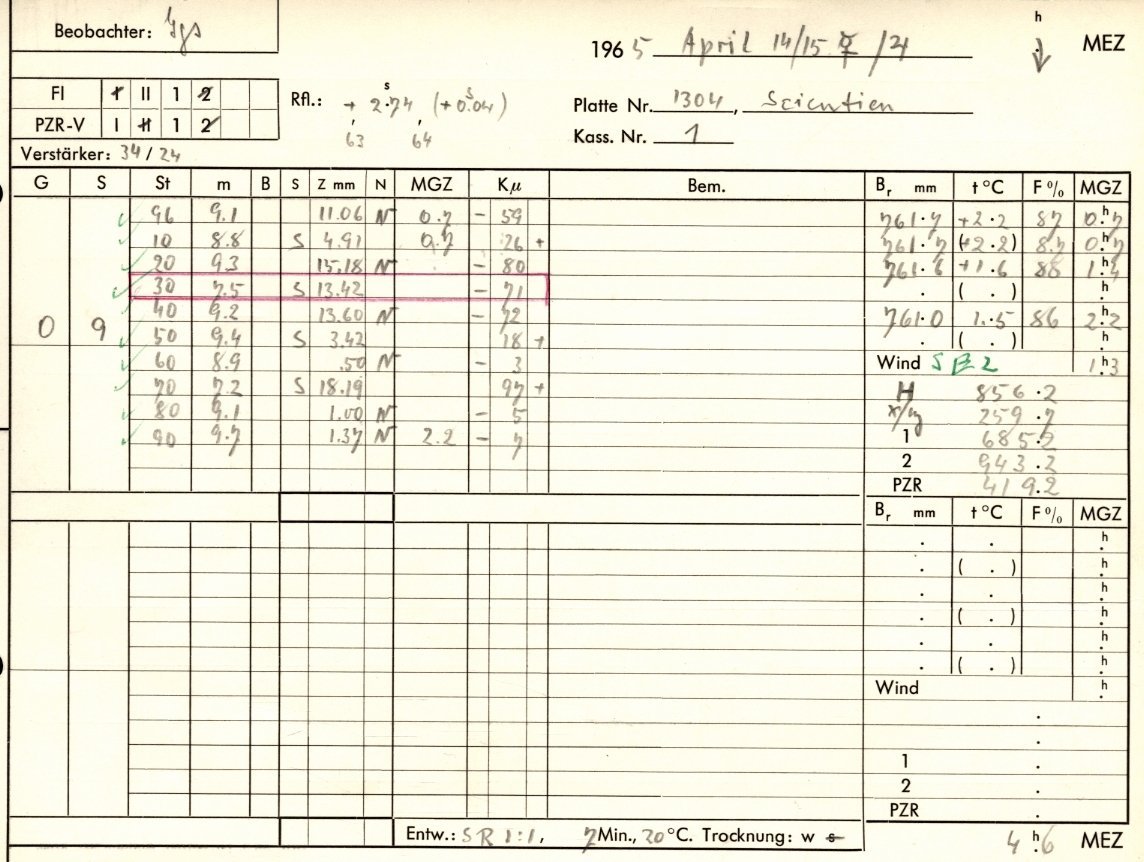 Beobachter:
h
1965 April 14/15 MEZ
FI I II 1 2
PZR-V I II 1 2
s s
Rfl.: + 2.74 (+0.04)
63 64
Platte Nr. 1304, Scientien
Kass. Nr. 1
Verstärker: 34/24
G S St m B S Z mm N MGZ Kμ Bem. Br mm t °C F % MGZ
96 9.1 11.06 N 0.7 – 59 761.7 +2.2 87 0.h7
10 8.8 S 4.91 0.7 26 + 761.7 (+2.2) 87 0.h7
20 9.3 15.18 N – 80 761.6 +1.6 88 1.h4
30 7.5 S 13.42 – 71 . ( . ) .h
40 9.2 13.60 N – 72 761.0 1.5 86 2.h2
0 9 50 9.4 S 3.42 18 + . ( . ) .h
60 8.9 .50 N – 3 Wind SE 2 1.h3
70 7.2 S 18.19 97 + H 856.2
80 9.1 1.00 N – 5 259.7
90 9.7 1.37 N 2.2 – 7 1 685.2
2 943.2
PZR 419.2
Br mm t °C F % MGZ
. . .h
. ( . ) .h
. . .h
. ( . ) .h
. . .h
. ( . ) .h
Wind .h
.
.
1 .
2 .
PZR .
Entw.: SR 1:1, 7 Min., 20 °C. Trocknung: w s 4.h6 MEZ